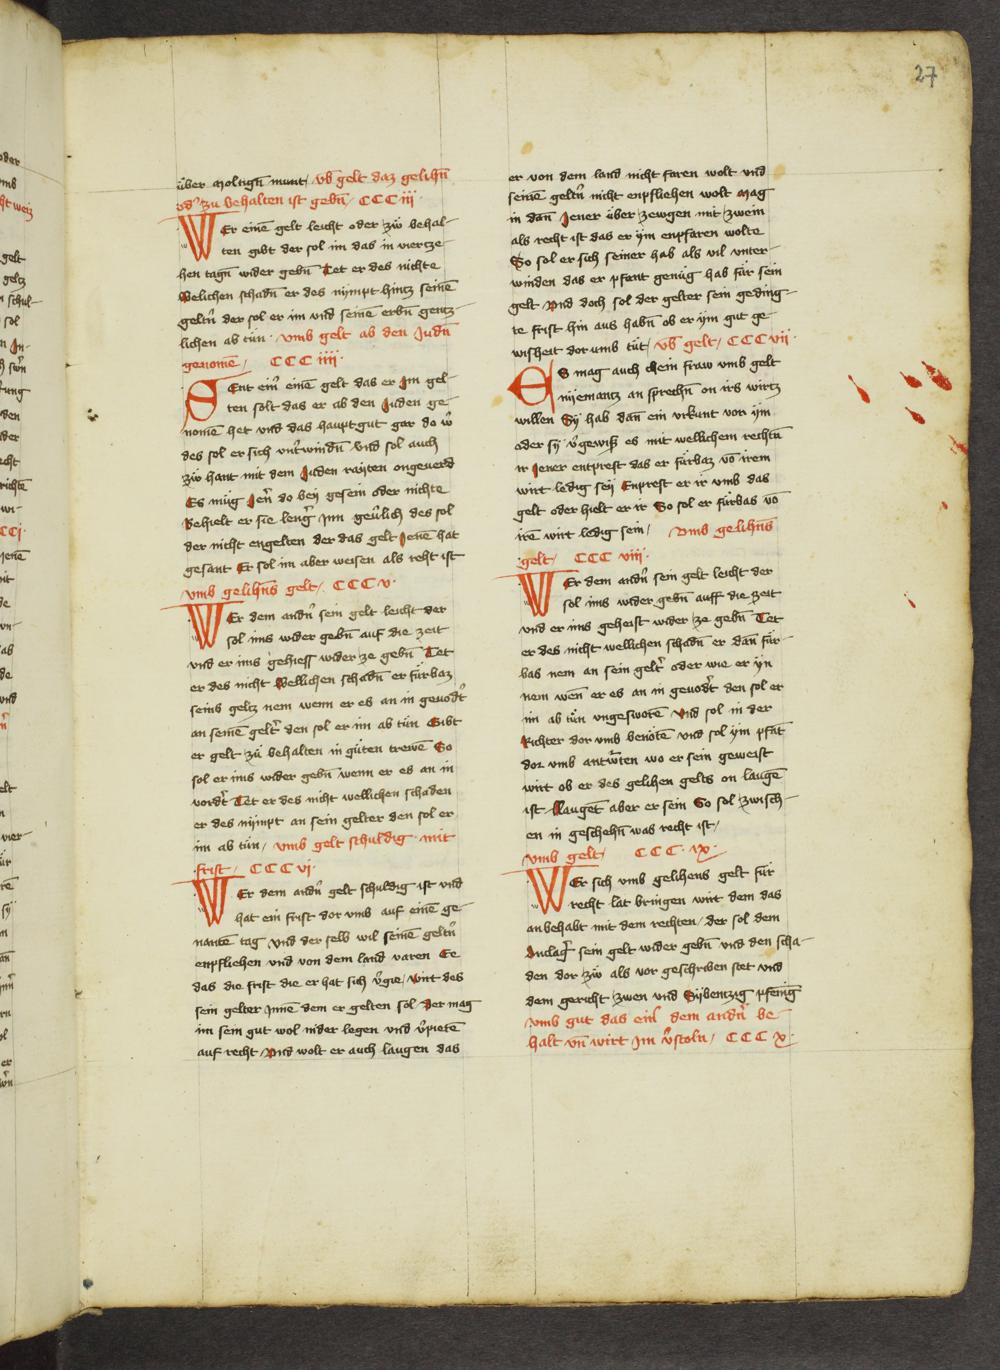 27
über moltign̄ munt vb̄ gelt daz gelihn̄
od͛ zu behalten ist gebn̄ CCC iii
WEr einē gelt leicht oder zů behal-
ten gibt der sol im das in viercze-
hen tagn̄ wider gebn̄ Tet er des nichte
Welichen schadn̄ er des nympt hintz seinē
geltn̄ der sol er im vnd seinē erbn̄ gentz-
lichen ab tůn · vmb gelt ab den Judn̄
genomē CCC iiii
SEnt eim̄ einē gelt das er Im gel-
ten solt das er ab den Juden ge
nomē het vnd das hauptgut gar do w͛
des sol er sich vnt͛windn̄ vnd sol auch
zů hant mit dem Juden rayten ongeuerd
Es müg Jen̄ do bey gesein oder nichte
Behielt er sie leng͛ Inn geu͛lich des sol
der nicht engelten der das gelt Jenē hat
gesant Er sol im aber weisen als reht ist
vmb gelihn̄s gelt CCC v·
WEr dem andn̄ sein gelt leicht der
sol ims wider gebn̄ auf die zeit
vnd er ims gehiess wider ze gebn̄ Tet
er des nicht Wellichen schadn̄ er fürbaz
seins geltz nem wenn er es an in geuod͛t
an seinē gelt͛ den sol er im ab tün Gibt
er gelt zů behalten in gůten trewē So
sol er ims wider gebn̄ wenn er es an in
vord͛t Tet er des nicht wellichen schaden
er des nympt an sein gelter den sol er
im ab tün / vmb gelt schuldig · mit
frist / CCC vi·
WEr dem andn̄ gelt schuldig ist vnd
hat ein frist dor vmb auf einē ge-
nantē tag vnd der selb wil seinē geltn̄
enpfliehen vnd von dem land varen Ee
das die frist die er hat sich v͛gie / wirt des
sein gelter Innē dem er gelten sol Der mag
im sein gut wol nider legen vnd v͛pietē
auf recht Vnd wolt er auch laugen das
er von dem land nicht faren wolt vnd
seinē geltn̄ nicht enpfliehen wolt mag
in dan̄ Jener über zewgen mit zwein
als recht ist das er ym enpfaren wolte
So sol er sich seiner hab als vil vnter-
winden das er pfant genůg hab für sein
gelt Vnd doch sol der gelter sein geding-
te frist hin aus habn̄ ob er ym gut ge
wisheit dorumb tüt / vb̄ gelt / CCC vii·
ES mag auch chein fraw vmb gelt
nyemantz an sprechn̄ on irs wirtz
willen Sy hab dan̄ ein vrkunt vor ym
oder sy v͛gewiss es mit wellichem rechtn̄
ir Jener entprest das er fürbaz vō irem
wirt ledig sey Enprest er ir vmb das
gelt oder hielt er ir So sol er fürbas vō
irē wirt ledig sein / vmb gelihn̄s
gelt / CCC viii·
WEr dem andn̄ sein gelt leicht der
sol ims wider gebn̄ auff die zeit
vnd er ims geheist wider ze gebn̄ Tet
er des nicht wellichen schadn̄ er dan̄ für-
bas nem an sein gelt͛ oder wie er yn
nem wen̄ er es an in geuod͛t den sol er
im ab tün vngeswotē Vnd sol in der
Richter dor vmb benötē vnd sol ym pfāt
dor vmb antw͛ten wo er sein geweist
wirt ob er des gelihen gelts on laugē
ist Laugēt aber er sein So sol zwisch-
en in geschehn̄ was recht ist /
vmb gelt / CCC · ix·
WEr sich vmb gelihens gelt für
recht lat bringen wirt dem das
an behabt mit dem rechten / der sol dem
Anclag͛ sein gelt wider gebn̄ vnd den scha-
den dor zů als vor geschriben stet vnd
dem gericht zwen vnd Sybentzig pfenīg
vmb gut das ein͛ dem andn̄ be
halt vn̄ wirt Im v͛stoln / CCC x·